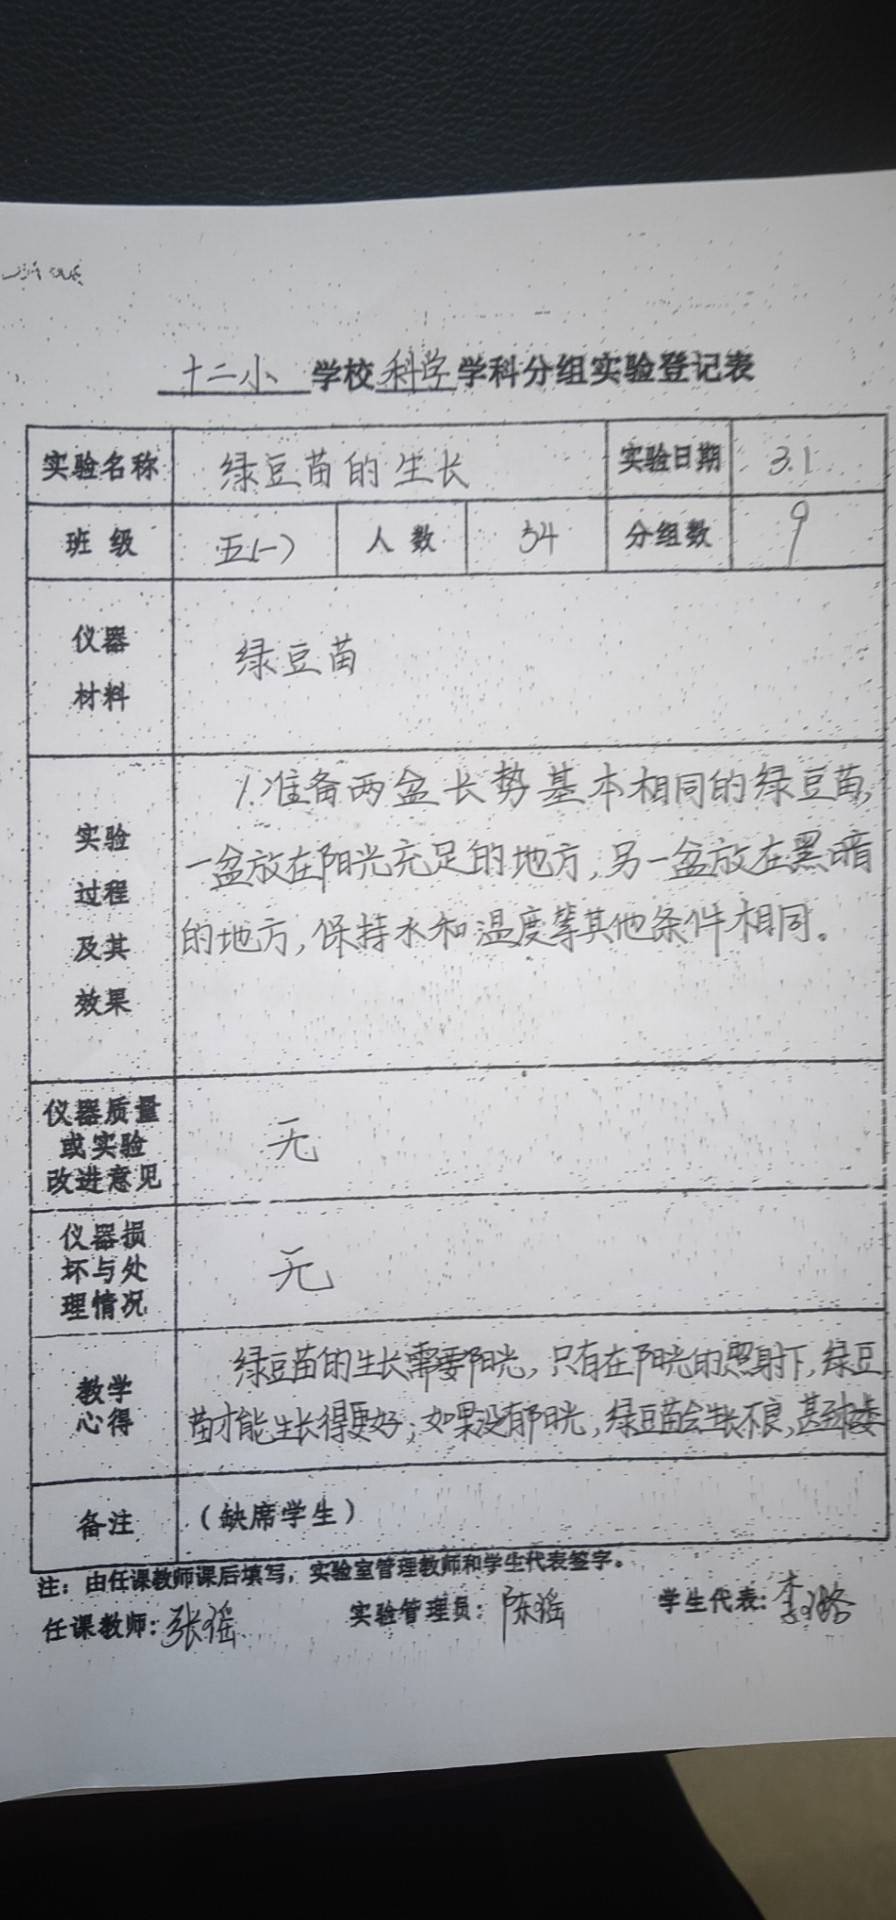 十二小 学校 科学 学科分组实验登记表
实验名称 绿豆苗的生长 实验日期 3.1
班级 五(一) 人数 34 分组数 9
仪器
材料
绿豆苗
实验
过程
及其
效果
1.准备两盆长势基本相同的绿豆苗,
一盆放在阳光充足的地方,另一盆放在黑暗
的地方,保持水和温度等其他条件相同。
仪器质量
或实验
改进意见
无
仪器损
坏与处
理情况
无
教学
心得
绿豆苗的生长需要阳光,只有在阳光的照射下,绿豆
苗才能生长得更好;如果没有阳光,绿豆苗会生长不良,甚至
备注 (缺席学生)
注:由任课教师课后填写,实验室管理教师和学生代表签字。
任课教师:张瑶 实验管理员:陈瑶 学生代表:李